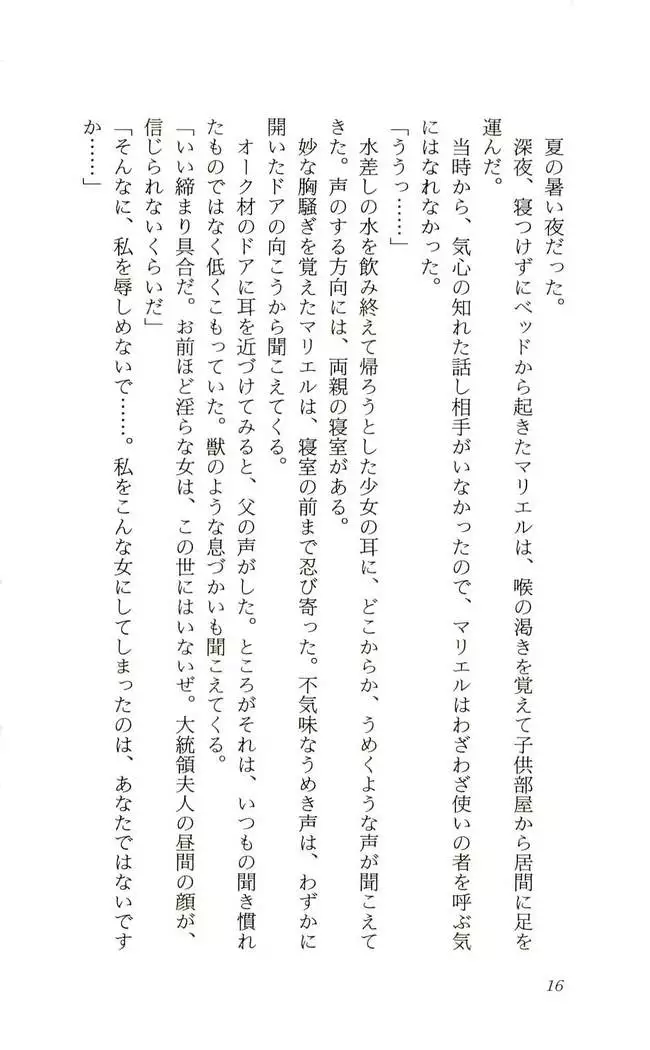 夏の暑い夜だった。
深夜、寝つけずにベッドから起きたマリエルは、喉の渇きを覚えて子供部屋から居間に足を
運んだ。
当時から、気心の知れた話し相手がいなかったので、マリエルはわざわざ使いの者を呼ぶ気
にはなれなかった。
「ううっ……」
水差しの水を飲み終えて帰ろうとした少女の耳に、どこからか、うめくような声が聞こえて
きた。声のする方向には、両親の寝室がある。
妙な胸騒ぎを覚えたマリエルは、寝室の前まで忍び寄った。不気味なうめき声は、わずかに
開いたドアの向こうから聞こえてくる。
オーク材のドアに耳を近づけてみると、父の声がした。ところがそれは、いつもの聞き慣れ
たものではなく低くこもっていた。獣のような息づかいも聞こえてくる。
「いい締まり具合だ。お前ほど淫らな女は、この世にはいないぜ。大統領夫人の昼間の顔が、
信じられないくらいだ」
「そんなに、私を辱しめないで……。私をこんな女にしてしまったのは、あなたではないです
か……」
16